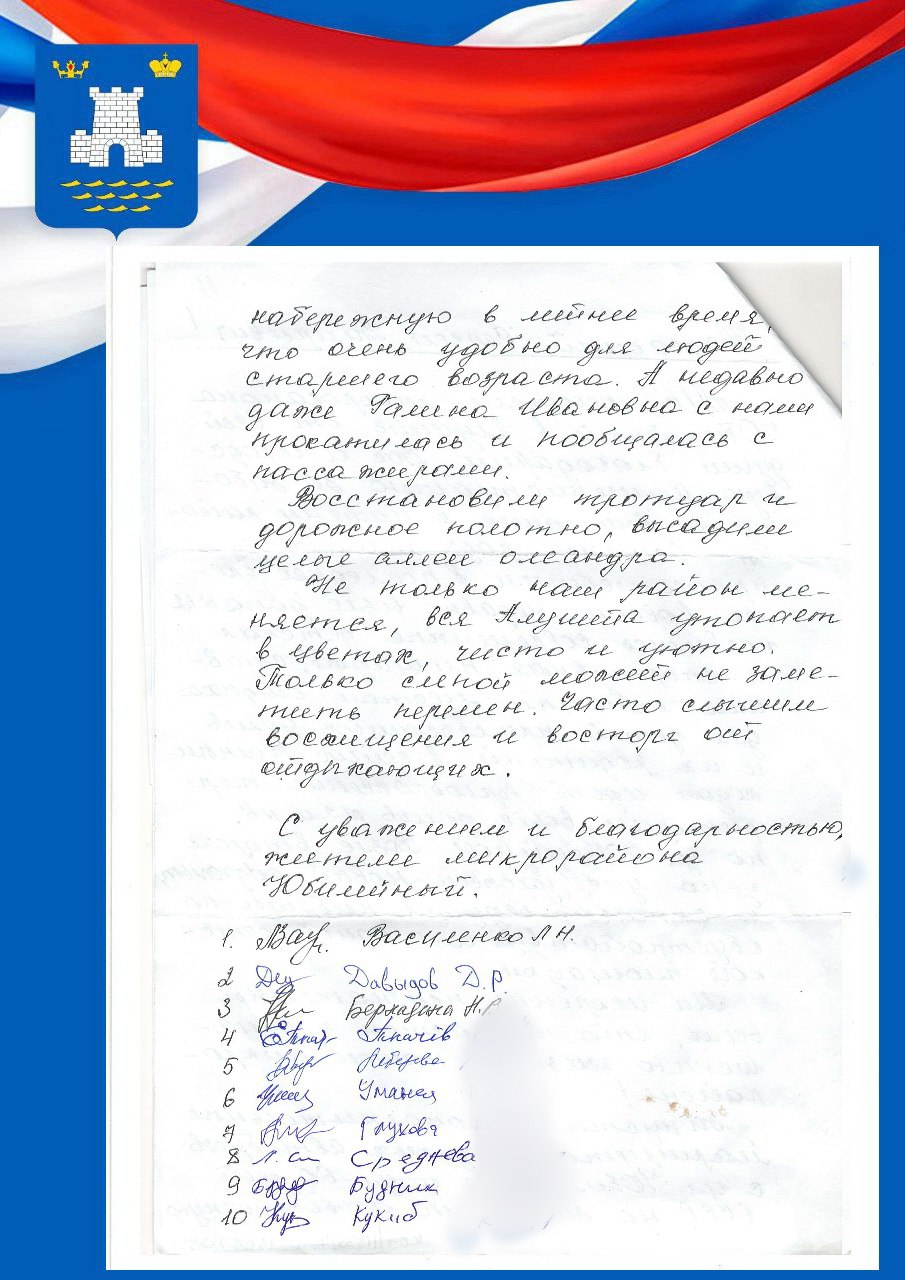 набережную в летнее время,
что очень удобно для людей
старшего возраста. А недавно
даже Галина Ивановна с нами
прокатилась и пообщалась с
пассажирами.
Восстановили тротуар и
дорожное полотно, высадили
целые аллеи олеандра.
Не только наш район ме-
няется, вся Алушта утопает
в цветах, чисто и уютно.
Только слепой может не заме-
тить перемен. Часто слышим
восхищения и восторг от
отдыхающих.
С уважением и благодарностью,
жители микрорайона
Юбилейный.
1. Василенко Л Н.
2 Давыдов Д.Р.
3
4 Ткачёв
5
6
7 Глухова
8 Среднева
9 Будник
10 Кукиб